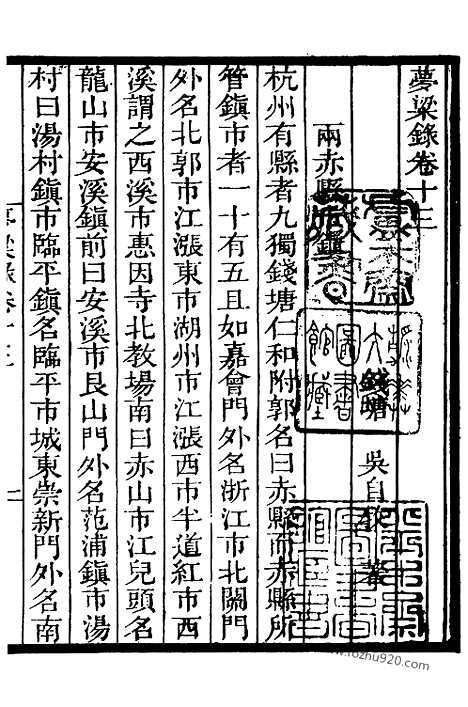 夢粱錄卷十三
錢塘 吳自牧 著
兩赤縣市鎮
杭州有縣者九獨錢塘仁和附郭名曰赤縣而赤縣所
管鎮市者一十有五且如嘉會門外名浙江市北關門
外名北郭市江漲東市湖州市江漲西市半道紅市西
溪謂之西溪市惠因寺北教場南曰赤山市江兒頭名
龍山市安溪鎮前曰安溪市艮山門外名范浦鎮市湯
村曰湯村鎮市臨平鎮名臨平市城東崇新門外名南
www.fozhu920.com